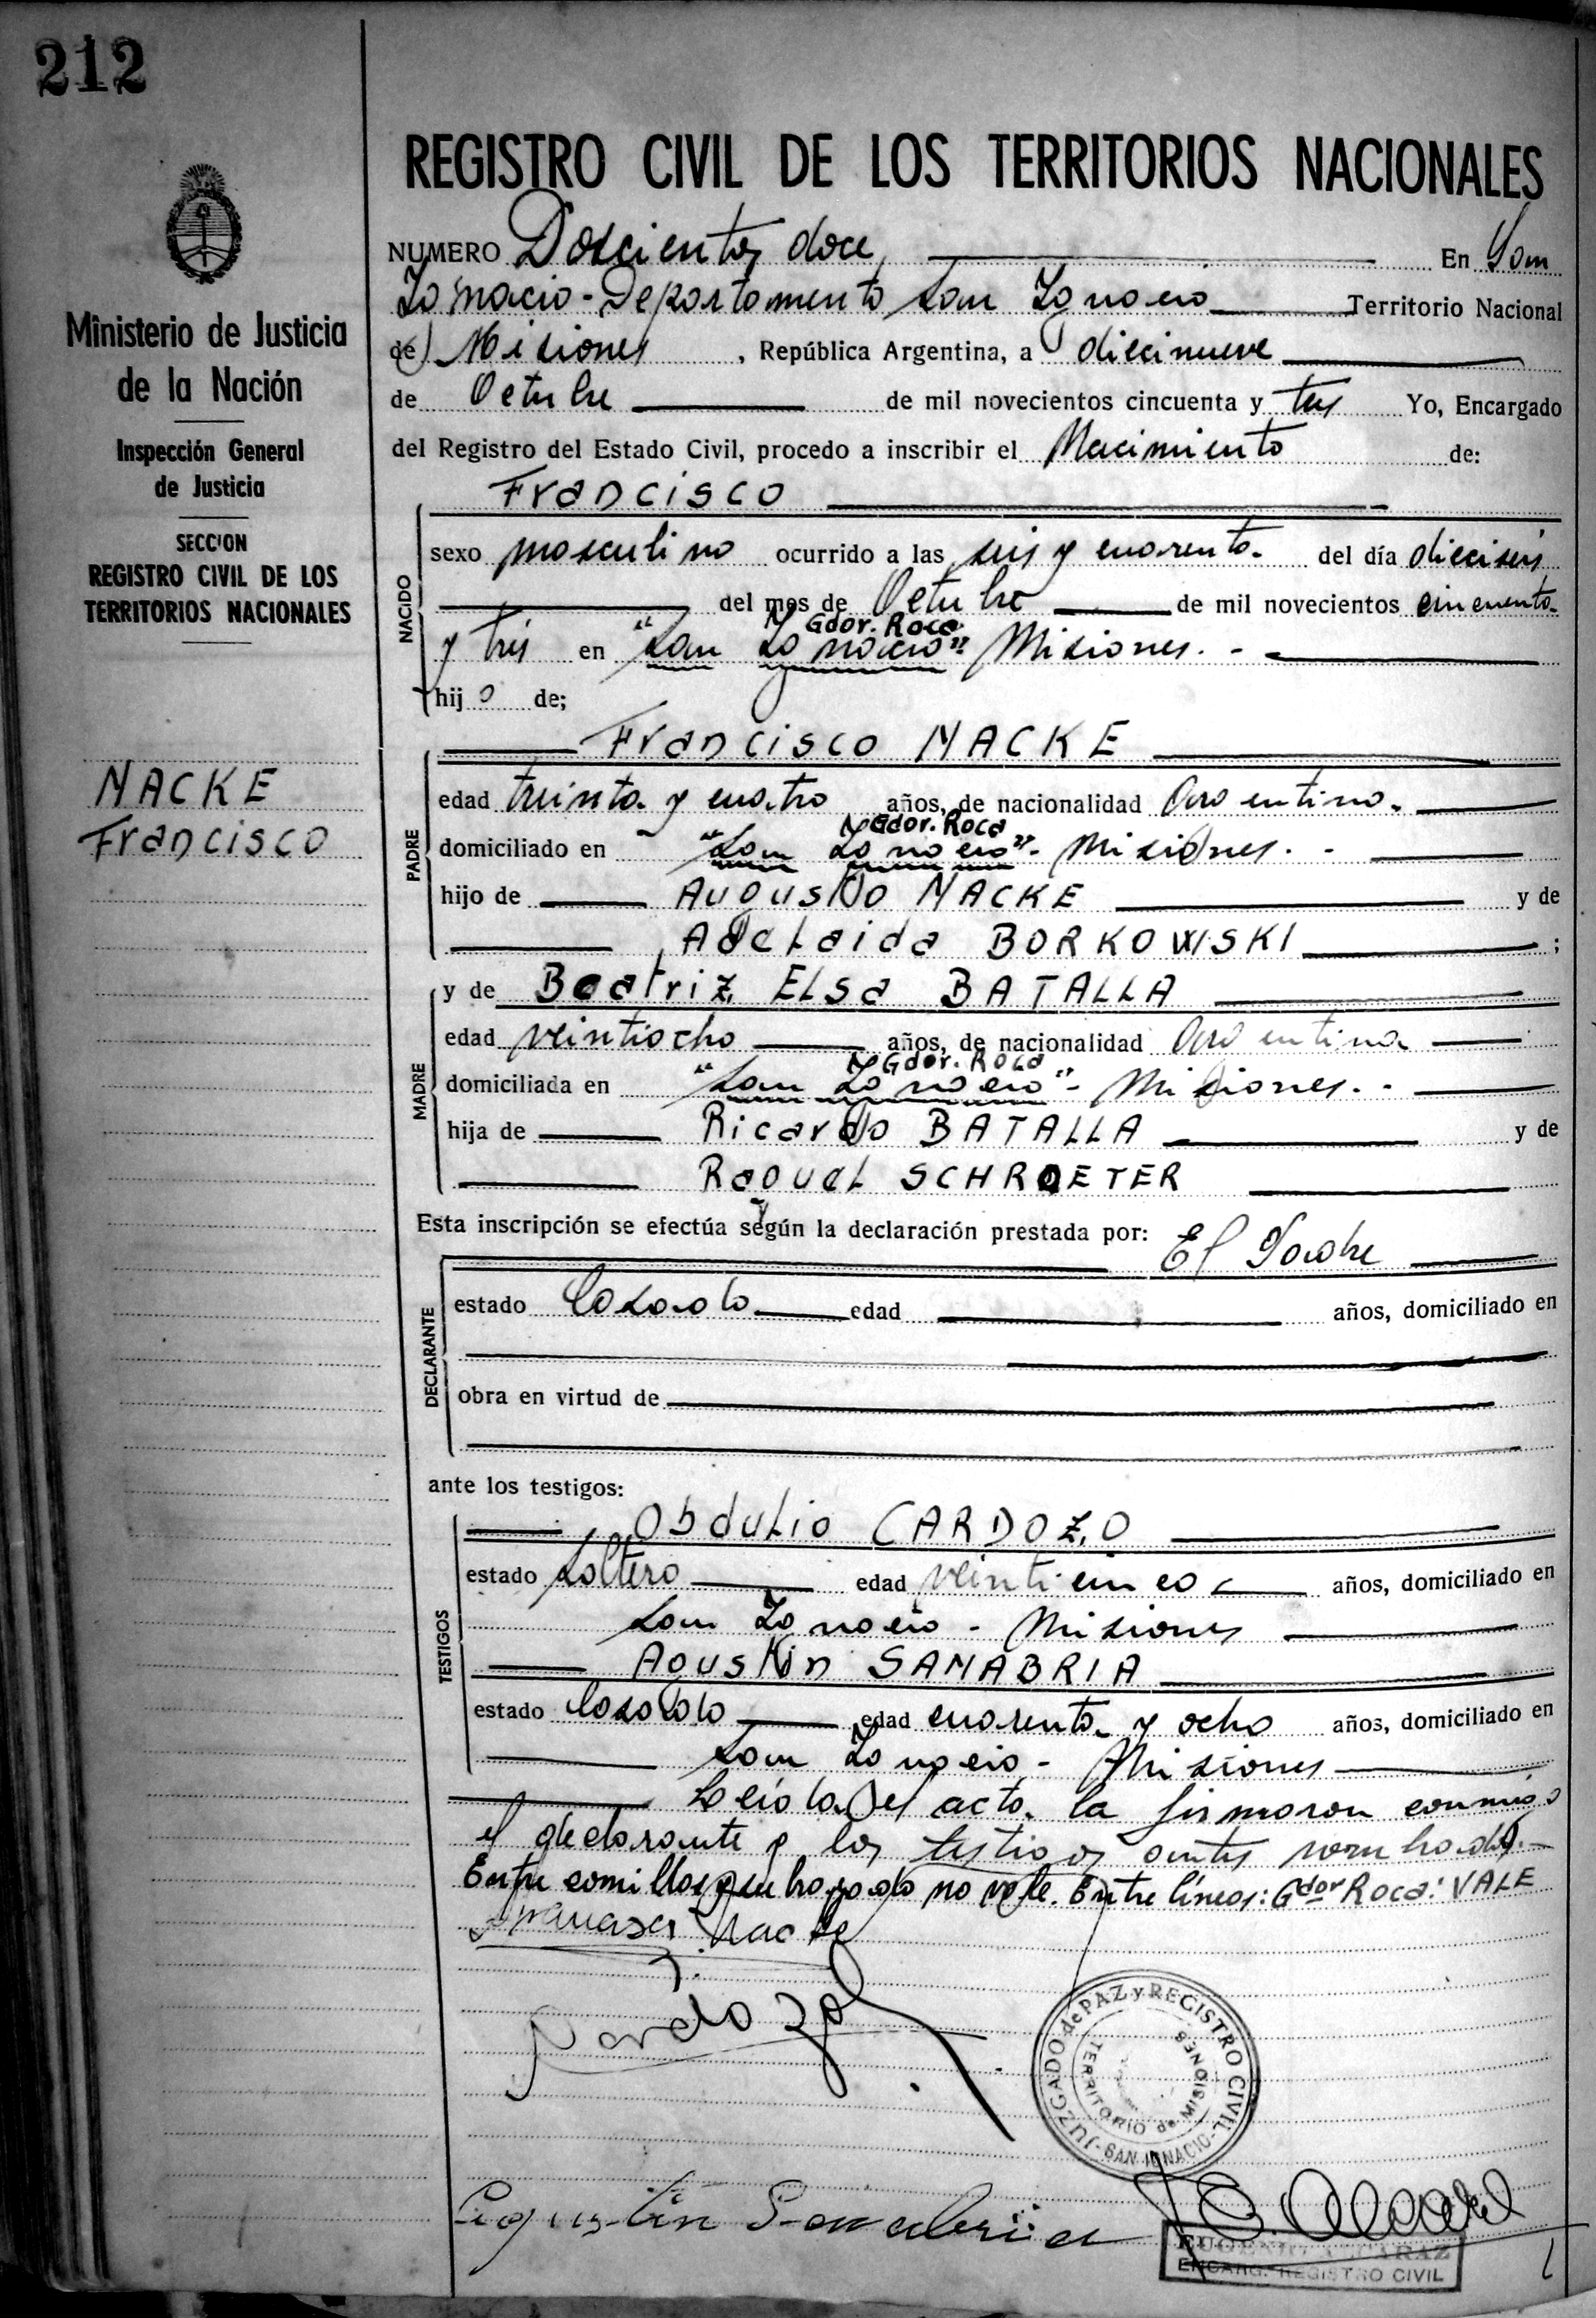 212
REGISTRO CIVIL DE LOS TERRITORIOS NACIONALES
Ministerio de Justicia
de la Nación
Inspección General
de Justicia
SECCION
REGISTRO CIVIL DE LOS
TERRITORIOS NACIONALES
NACKE
Francisco
NUMERO Doscientos doce, En San
Ignacio - Departamento San Ignacio Territorio Nacional
de Misiones, República Argentina, a diecinueve
de Octubre de mil novecientos cincuenta y tres Yo, Encargado
del Registro del Estado Civil, procedo a inscribir el Nacimiento de:
Francisco
NACIDO
sexo masculino ocurrido a las seis y cuarenta. del día dieciseis
del mes de Octubre de mil novecientos cincuenta
Gdor. Roca
y trés en "San Ignacio" Misiones. -
hijo de;
Francisco NACKE
PADRE
edad treinta y cuatro años, de nacionalidad Argentina.
Gdor. Roca
domiciliado en "San Ignacio" - Misiones. -
hijo de Augusto NACKE y de
Adelaida BORKOWSKI ;
y de Beatriz Elsa BATALLA
MADRE
edad veintiocho años, de nacionalidad Argentina
Gdor. Roca
domiciliada en "San Ignacio" - Misiones. -
hija de Ricardo BATALLA y de
Raquel SCHROETER
Esta inscripción se efectúa según la declaración prestada por: El Padre
DECLARANTE
estado Casado edad años, domiciliado en
obra en virtud de
ante los testigos:
Obdulio CARDOZO
TESTIGOS
estado Soltero edad veinticinco años, domiciliado en
San Ignacio - Misiones
Agustin SANABRIA
estado Casado edad cuarenta y ocho años, domiciliado en
San Ignacio - Misiones
Leída el acta la firmaron conmigo
el declarante y los testigos antes nombrados.
Entre comillas y subrayado no vale. Entre líneas: Gdor Roca: VALE
Nacke
Cardozo
JUZGADO de PAZ y REGISTRO CIVIL
SAN IGNACIO
TERRITORIO de MISIONES
Agustin Sanabria
EUGENIO ALCARAZ
ENCARG. REGISTRO CIVIL